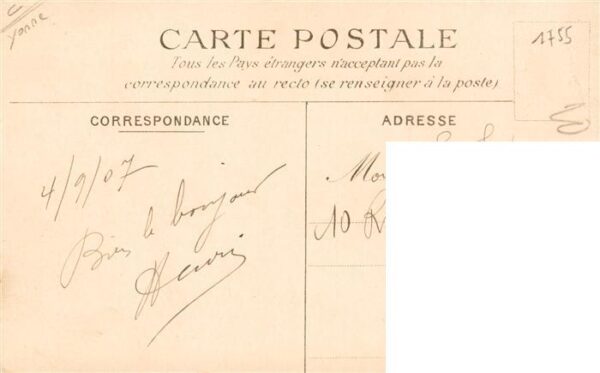 Yonne
1755
CARTE POSTALE
Tous les Pays étrangers n'acceptant pas la
correspondance au recto (se renseigner à la poste)
CORRESPONDANCE
4/9/07
Bien le bonjour
Henri
ADRESSE
10